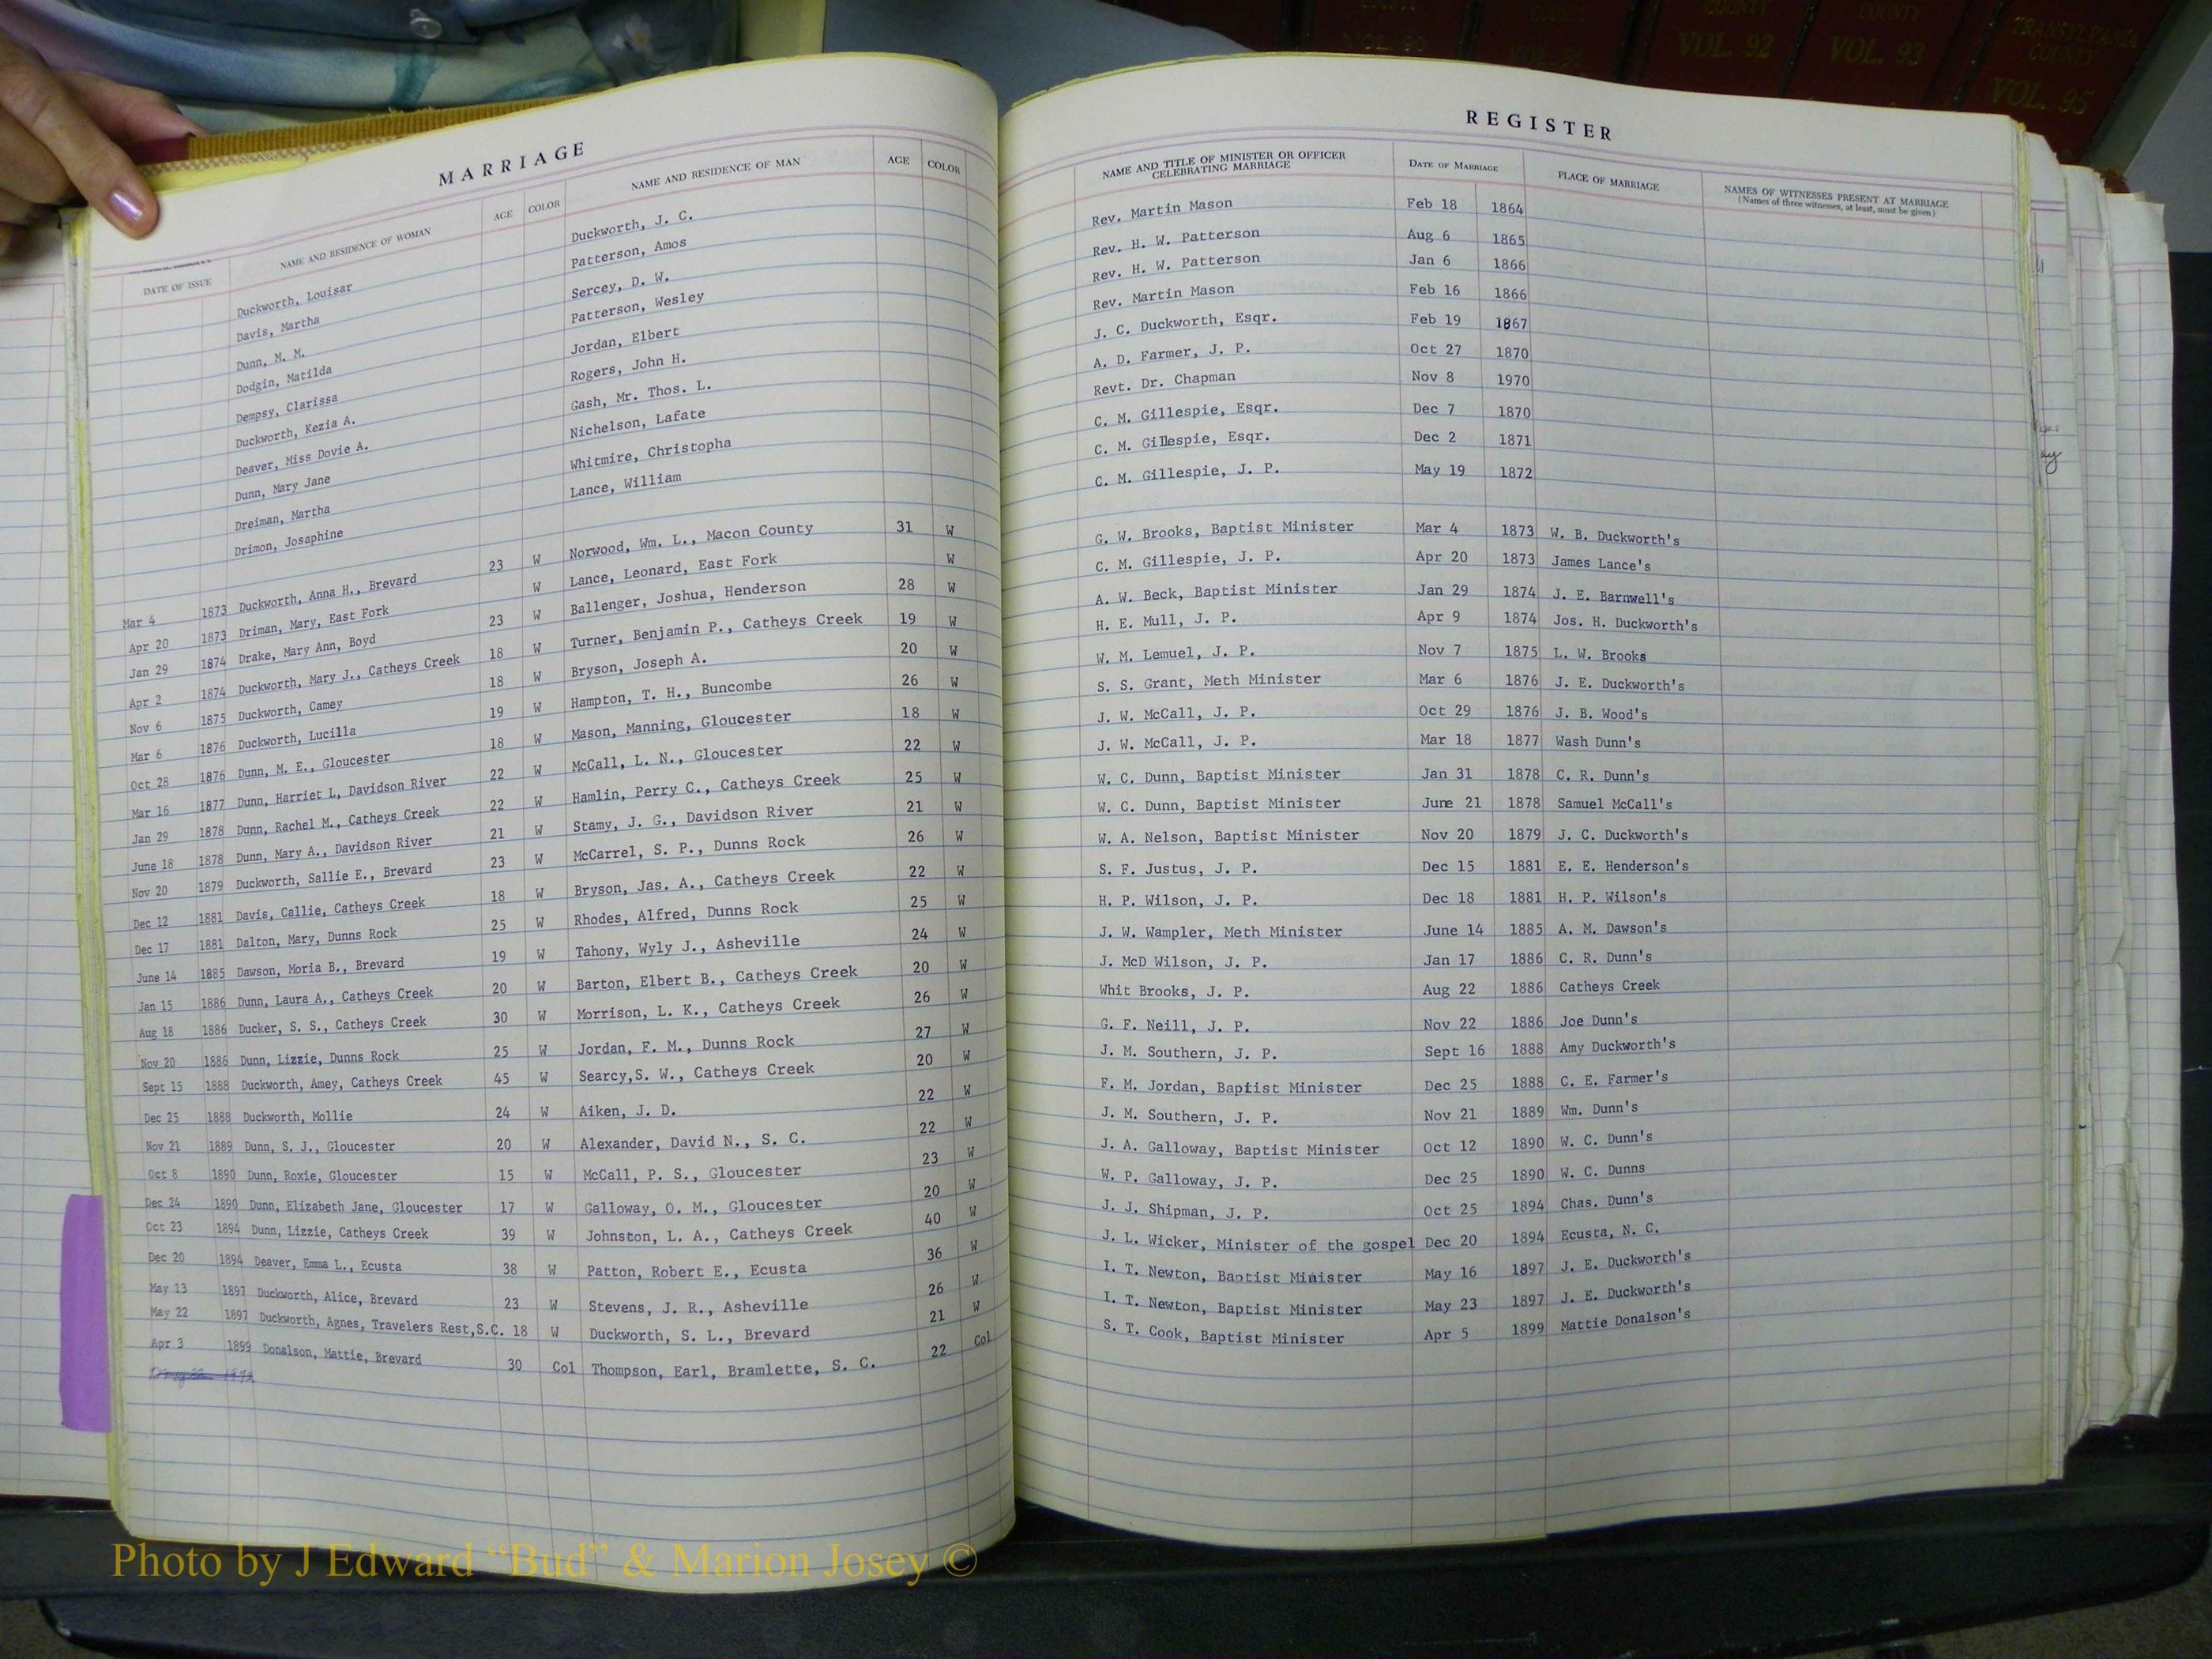 COUNTY VOL. 92
COUNTY VOL. 93
TRANSYLVANIA COUNTY VOL. 95
MARRIAGE
REGISTER
DATE OF ISSUE NAME AND RESIDENCE OF WOMAN AGE COLOR NAME AND RESIDENCE OF MAN AGE COLOR NAME AND TITLE OF MINISTER OR OFFICER CELEBRATING MARRIAGE DATE OF MARRIAGE PLACE OF MARRIAGE NAMES OF WITNESSES PRESENT AT MARRIAGE (Names of three witnesses, at least, must be given)
Duckworth, Louisar Duckworth, J. C. Rev. Martin Mason Feb 18 1864
Davis, Martha Patterson, Amos Rev. H. W. Patterson Aug 6 1865
Dunn, M. M. Sercey, D. W. Rev. H. W. Patterson Jan 6 1866
Dodgin, Matilda Patterson, Wesley Rev. Martin Mason Feb 16 1866
Dempsy, Clarissa Jordan, Elbert J. C. Duckworth, Esqr. Feb 19 1867
Duckworth, Kezia A. Rogers, John H. A. D. Farmer, J. P. Oct 27 1870
Deaver, Miss Dovie A. Gash, Mr. Thos. L. Revt. Dr. Chapman Nov 8 1970
Dunn, Mary Jane Nichelson, Lafate C. M. Gillespie, Esqr. Dec 7 1870
Dreiman, Martha Whitmire, Christopha C. M. Gillespie, Esqr. Dec 2 1871
Drimon, Josaphine Lance, William C. M. Gillespie, J. P. May 19 1872
Mar 4 1873 Duckworth, Anna H., Brevard 23 W Norwood, Wm. L., Macon County 31 W G. W. Brooks, Baptist Minister Mar 4 1873 W. B. Duckworth's
Apr 20 1873 Driman, Mary, East Fork W Lance, Leonard, East Fork W C. M. Gillespie, J. P. Apr 20 1873 James Lance's
Jan 29 1874 Drake, Mary Ann, Boyd 23 W Ballenger, Joshua, Henderson 28 W A. W. Beck, Baptist Minister Jan 29 1874 J. E. Barnwell's
Apr 2 1874 Duckworth, Mary J., Catheys Creek 18 W Turner, Benjamin P., Catheys Creek 19 W H. E. Mull, J. P. Apr 9 1874 Jos. H. Duckworth's
Nov 6 1875 Duckworth, Camey 18 W Bryson, Joseph A. 20 W W. M. Lemuel, J. P. Nov 7 1875 L. W. Brooks
Mar 6 1876 Duckworth, Lucilla 19 W Hampton, T. H., Buncombe 26 W S. S. Grant, Meth Minister Mar 6 1876 J. E. Duckworth's
Oct 28 1876 Dunn, M. E., Gloucester 18 W Mason, Manning, Gloucester 18 W J. W. McCall, J. P. Oct 29 1876 J. B. Wood's
Mar 16 1877 Dunn, Harriet L, Davidson River 22 W McCall, L. N., Gloucester 22 W J. W. McCall, J. P. Mar 18 1877 Wash Dunn's
Jan 29 1878 Dunn, Rachel M., Catheys Creek 22 W Hamlin, Perry C., Catheys Creek 25 W W. C. Dunn, Baptist Minister Jan 31 1878 C. R. Dunn's
June 18 1878 Dunn, Mary A., Davidson River 21 W Stamy, J. G., Davidson River 21 W W. C. Dunn, Baptist Minister June 21 1878 Samuel McCall's
Nov 20 1879 Duckworth, Sallie E., Brevard 23 W McCarrel, S. P., Dunns Rock 26 W W. A. Nelson, Baptist Minister Nov 20 1879 J. C. Duckworth's
Dec 12 1881 Davis, Callie, Catheys Creek 18 W Bryson, Jas. A., Catheys Creek 22 W S. F. Justus, J. P. Dec 15 1881 E. E. Henderson's
Dec 17 1881 Dalton, Mary, Dunns Rock 25 W Rhodes, Alfred, Dunns Rock 25 W H. P. Wilson, J. P. Dec 18 1881 H. P. Wilson's
June 14 1885 Dawson, Moria B., Brevard 19 W Tahony, Wyly J., Asheville 24 W J. W. Wampler, Meth Minister June 14 1885 A. M. Dawson's
Jan 15 1886 Dunn, Laura A., Catheys Creek 20 W Barton, Elbert B., Catheys Creek 20 W J. McD Wilson, J. P. Jan 17 1886 C. R. Dunn's
Aug 18 1886 Ducker, S. S., Catheys Creek 30 W Morrison, L. K., Catheys Creek 26 W Whit Brooks, J. P. Aug 22 1886 Catheys Creek
Nov 20 1886 Dunn, Lizzie, Dunns Rock 25 W Jordan, F. M., Dunns Rock 27 W G. F. Neill, J. P. Nov 22 1886 Joe Dunn's
Sept 15 1888 Duckworth, Amey, Catheys Creek 45 W Searcy,S. W., Catheys Creek 20 W J. M. Southern, J. P. Sept 16 1888 Amy Duckworth's
Dec 25 1888 Duckworth, Mollie 24 W Aiken, J. D. 22 W F. M. Jordan, Baptist Minister Dec 25 1888 C. E. Farmer's
Nov 21 1889 Dunn, S. J., Gloucester 20 W Alexander, David N., S. C. 22 W J. M. Southern, J. P. Nov 21 1889 Wm. Dunn's
Oct 8 1890 Dunn, Roxie, Gloucester 15 W McCall, P. S., Gloucester 23 W J. A. Galloway, Baptist Minister Oct 12 1890 W. C. Dunn's
Dec 24 1890 Dunn, Elizabeth Jane, Gloucester 17 W Galloway, O. M., Gloucester 20 W W. P. Galloway, J. P. Dec 25 1890 W. C. Dunns
Oct 23 1894 Dunn, Lizzie, Catheys Creek 39 W Johnston, L. A., Catheys Creek 40 W J. J. Shipman, J. P. Oct 25 1894 Chas. Dunn's
Dec 20 1894 Deaver, Emma L., Ecusta 38 W Patton, Robert E., Ecusta 36 W J. L. Wicker, Minister of the gospel Dec 20 1894 Ecusta, N. C.
May 13 1897 Duckworth, Alice, Brevard 23 W Stevens, J. R., Asheville 26 W I. T. Newton, Baptist Minister May 16 1897 J. E. Duckworth's
May 22 1897 Duckworth, Agnes, Travelers Rest,S.C. 18 W Duckworth, S. L., Brevard 21 W I. T. Newton, Baptist Minister May 23 1897 J. E. Duckworth's
Apr 3 1899 Donalson, Mattie, Brevard 30 Col Thompson, Earl, Bramlette, S. C. 22 Col S. T. Cook, Baptist Minister Apr 5 1899 Mattie Donalson's
Photo by J Edward “Bud” & Marion Josey ©